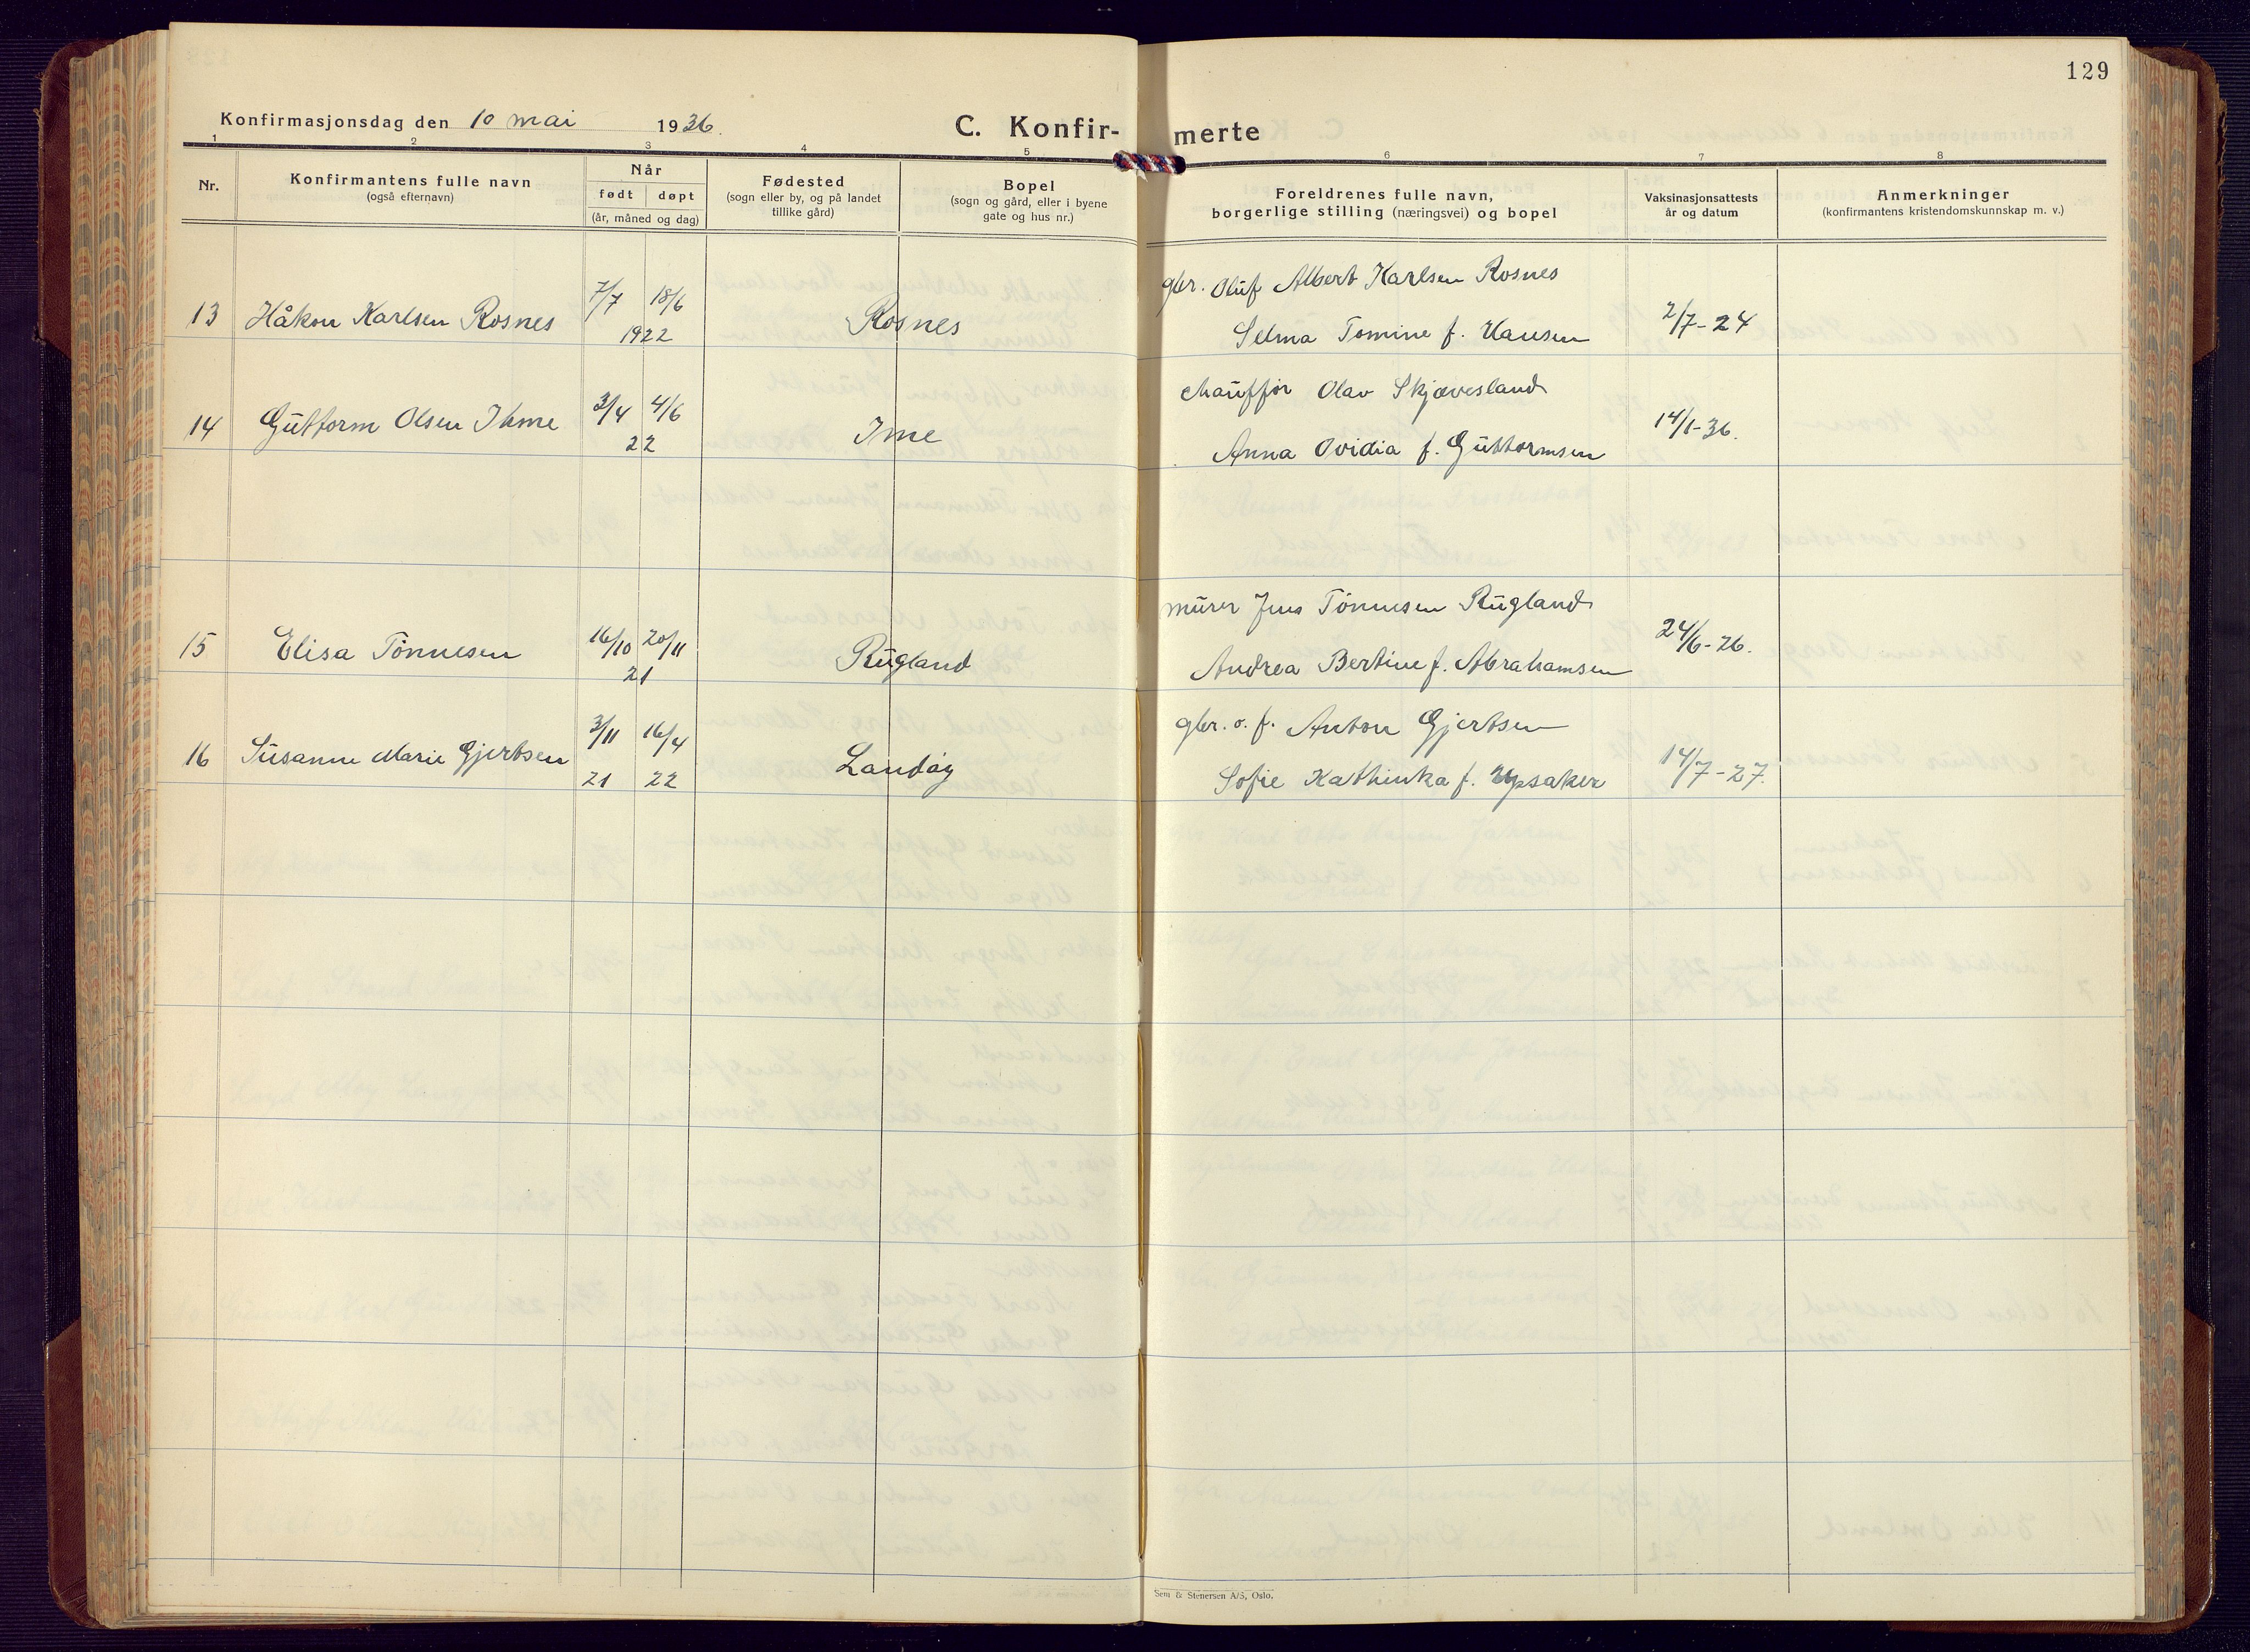 129
Konfirmasjonsdag den 10 mai 1936.
C. Konfir- merte
1 2 3 4 5 6 7 8
Nr.
Konfirmantens fulle navn
(også efternavn)
Når
født døpt
(år, måned og dag)
Fødested
(sogn eller by, og på landet
tillike gård)
Bopel
(sogn og gård, eller i byene
gate og hus nr.)
Foreldrenes fulle navn,
borgerlige stilling (næringsvei) og bopel
Vaksinasjonsattests
år og datum
Anmerkninger
(konfirmantens kristendomskunnskap m. v.)
gbr. Oluf Albert Karlsen Rosnes
13 Håkon Karlsen Rosnes 7/7 18/6 Rosnes 2/7-24
1922
Selma Tomine f. Hansen
chauffør Olav Skjævesland
14 Guttorm Olsen Ihme 3/4 4/6 Ime 14/1-36.
22
Anna Ovidia f. Guttormsen
murer Jens Tønnesen Rugland
15 Elisa Tønnesen 16/10 20/11 Rugland 24/6-26.
21
Andrea Bertine f. Abrahamsen
gbr. o. f. Anton Gjertsen
16 Susanne Marie Gjertsen 3/11 16/4 Landøy 14/7-27.
21 22
Sofie Kathinka f. Udsaker
Sem & Stenersen A/S, Oslo.